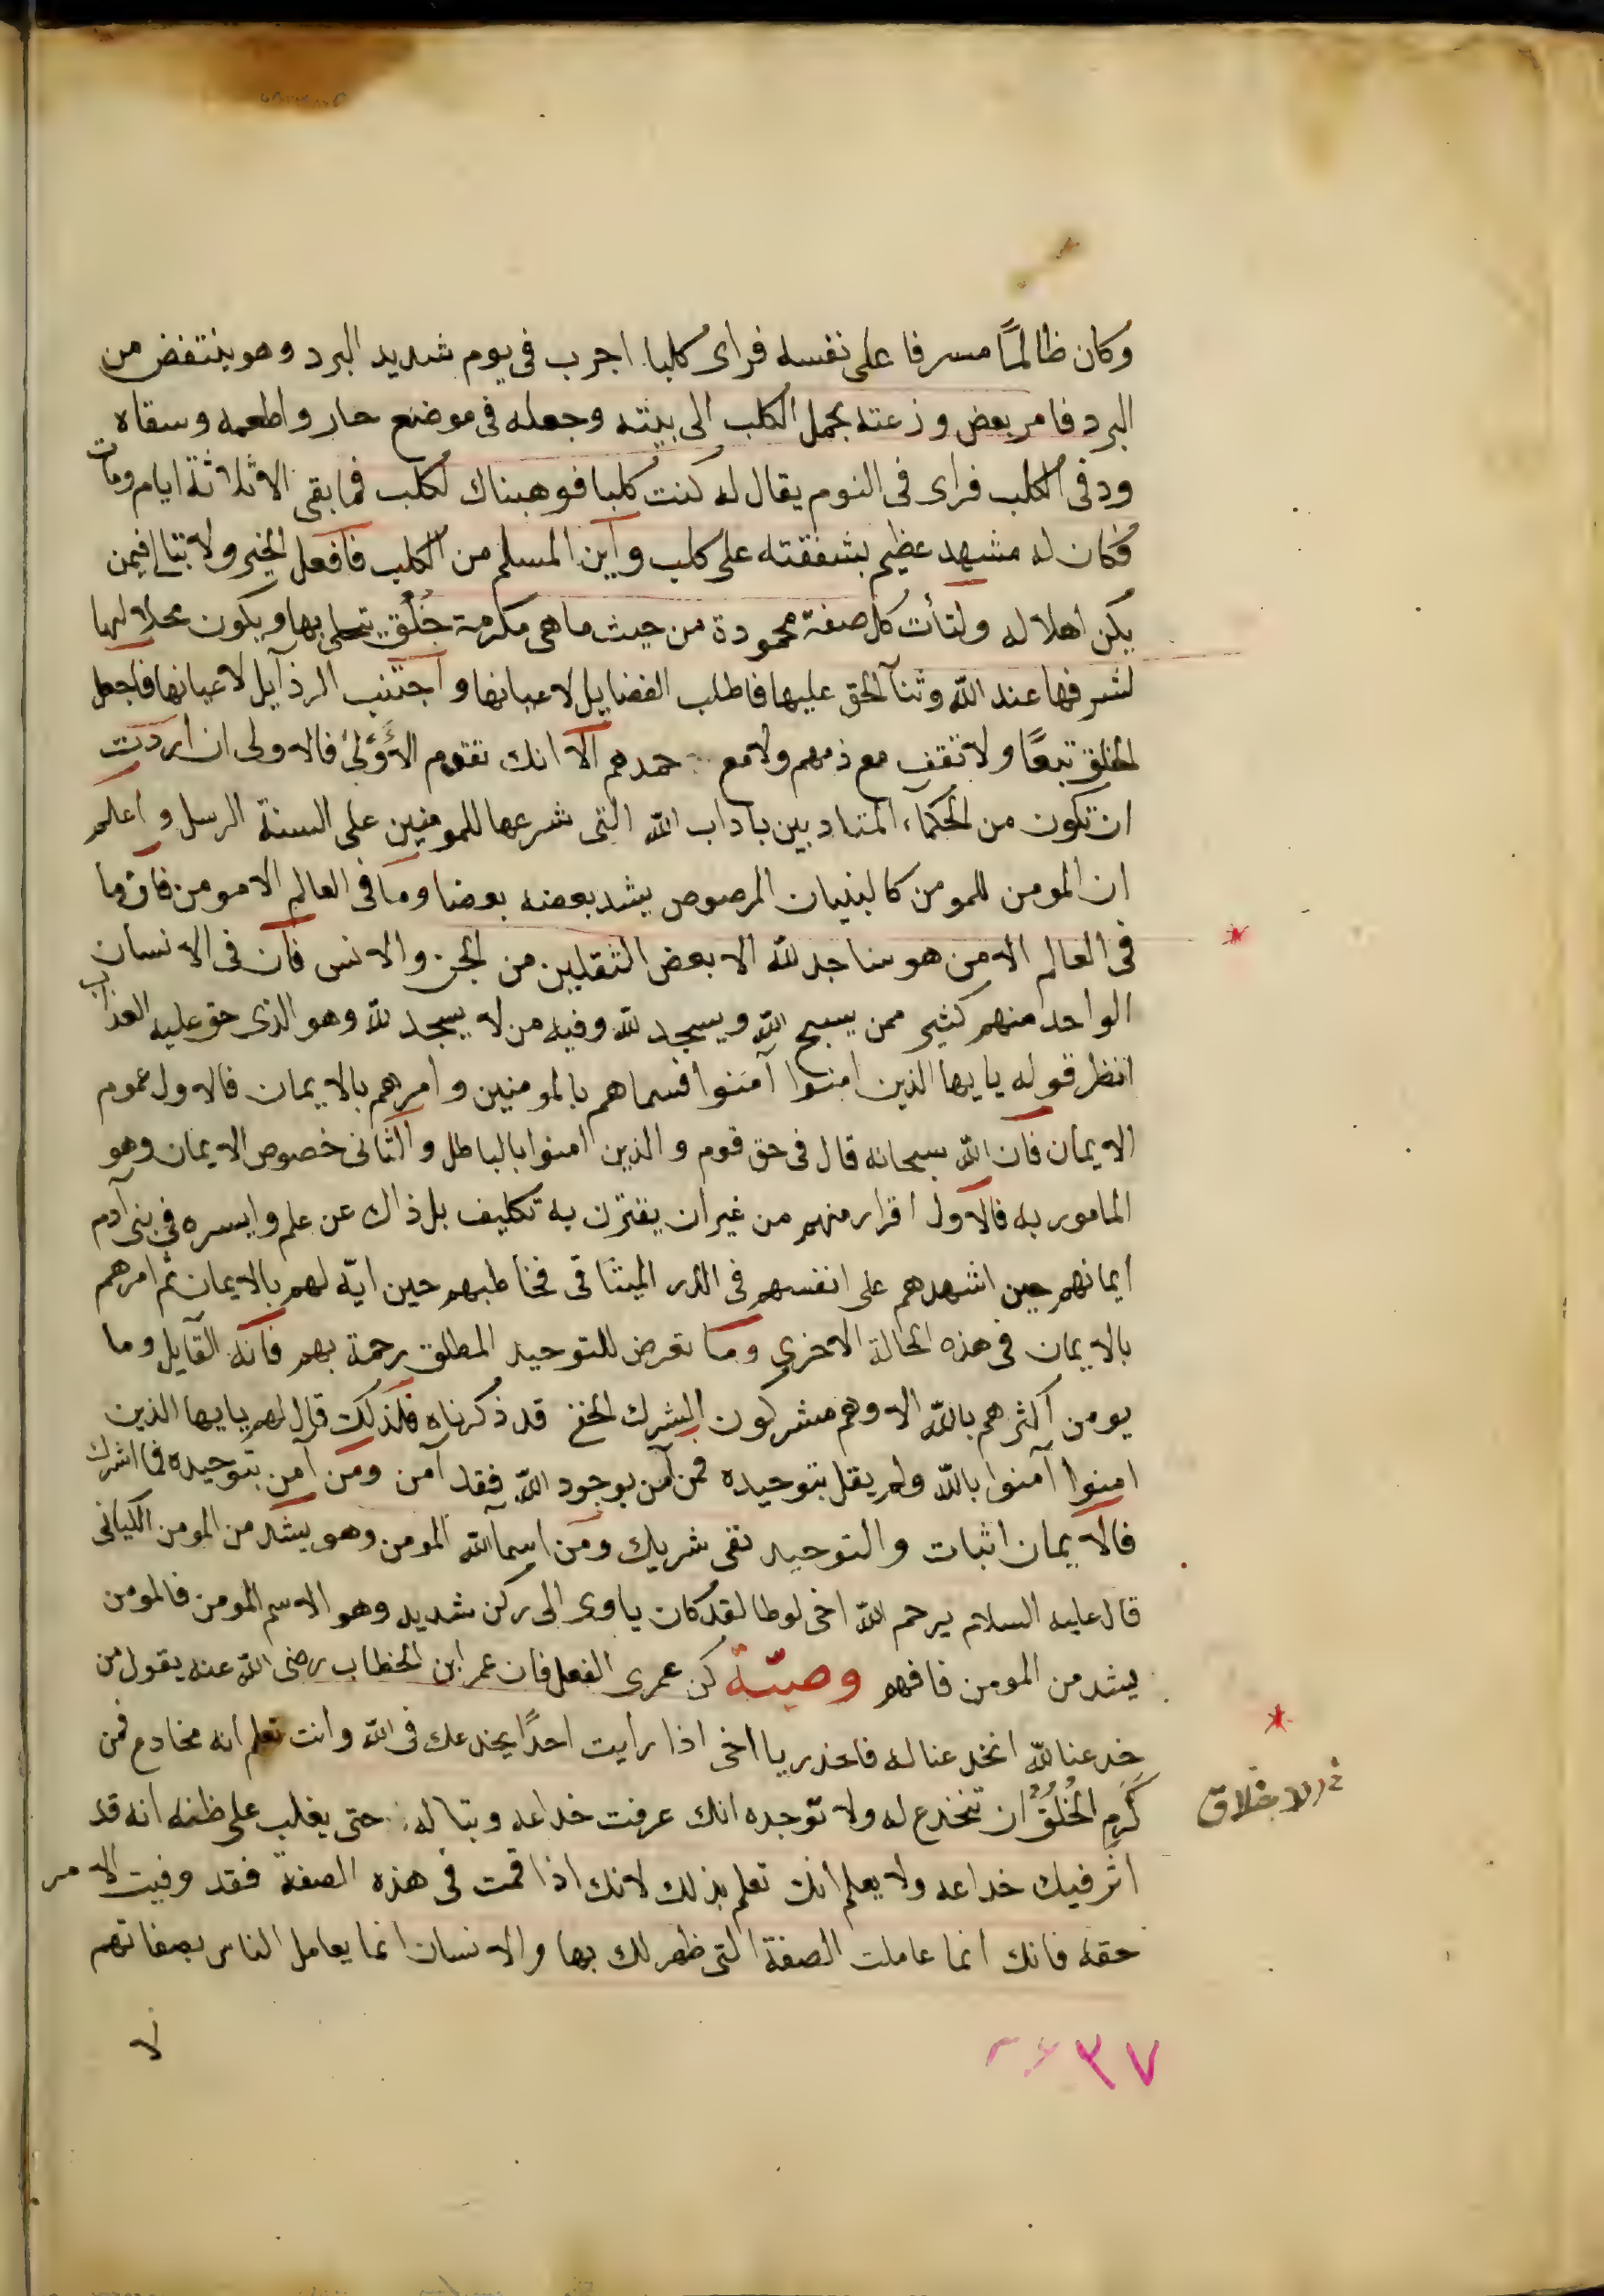 وكان ظالمًا مسرفا على نفسه فراى كلبا اجرب فى يوم شديد البرد وهو ينتفض من
البرد فامر بعض وزعته بحمل الكلب الى بيته وجعله فى موضع حار واطعمه وسقاه
ودفى الكلب فراى فى النوم يقال له كنت كلبا فوهبناك لكلب فما بقى الا ثلاثة ايام ومات
فكان له مشهد عظيم بشفقته على كلب وآين المسلم من الكلب فافعل الخير ولا تبالى فيمن
يكن اهلا له ولتأت كل صفة محمودة من حيث ما هى مكرمة خُلُق يتحلى بها ويكون محلا لها
لشرفها عند الله وثنآ الحق عليها فاطلب الفضايل لاعيانها وآجتنب الرذآيل لاعيانها فاجعل
الخلق تبعًا ولا تقف مع ذمهم ولا مع حمدهم آلا انك تقدم الأَوْلىٰ فالاولى ان اردت
ان تكون من الحكماء المتادبين باداب الله التى شرعها للمومنين على السنة الرسل واعلم
ان المومن للمومن كالبنيان المرصوص يشد بعضه بعضا وما فى العالم الا مومن فان ما
فى العالم الا من هو ساجد لله الا بعض الثقلين من الجن والانس فان فى الانسان
الواحد منهم كثير ممن يسبح الله ويسجد لله وفيه من لا يسجد لله وهو الذى حق عليه العذاب
انظر قوله يايها الذين امنوا آمنوا فسماهم بالمومنين وامرهم بالايمان فالاول عموم
الايمان فان الله سبحانه قال فى حق قوم والذين امنوا بالباطل والثانى خصوص الايمان وهو
المامور به فالاول اقرار منهم من غير ان يقترن به تكليف بل ذاك عن علم وايسره فى بنى آدم
ايمانهم حين اشهدهم على انفسهم فى الذر الميثاقى فخاطبهم حين ايّه لهم بالايمان ثم امرهم
بالايمان فى هذه الحالة الاخرى وما تعرض للتوحيد المطلق رحمة بهم فانه القآيل وما
يومن اكثرهم بالله الا وهم مشركون الشرك الخفى قد ذكرناه فلذلك قال لهم يايها الذين
امنوا آمنوا بالله ولم يقل بتوحيده فمن آمن بوجود الله فقد آمن ومن آمن بتوحيده فما اشرك
فالايمان اثبات والتوحيد نفى شريك ومن اسمآ الله المومن وهو يشد من المومن الكيانى
قال عليه السلام يرحم الله اخى لوطا لقد كان ياوى الى ركن شديد وهو الاسم المومن فالمومن
يشد من المومن فافهم وصيّة كن عمرى الفعل فان عمر ابن الخطاب رضى الله عنه يقول من
خدعنا لله انخدعنا له فاحذر يا اخى اذا رأيت احدًا يخدعك فى الله وانت تعلم انه مخادع فمن
كَرَمِ الخُلُقُ ان تنخدع له ولا توجده انك عرفت خداعه وتباله حتى يغلب على ظنه انه قد
اثر فيك خداعه ولا يعلم انك تعلم بذلك لانك اذا قمت فى هذه الصفة فقد وفيت الامر
حقه فانك انما عاملت الصفة التى ظهر لك بها والانسان انما يعامل الناس بصفاتهم
الاخلاق
لا
٣٧